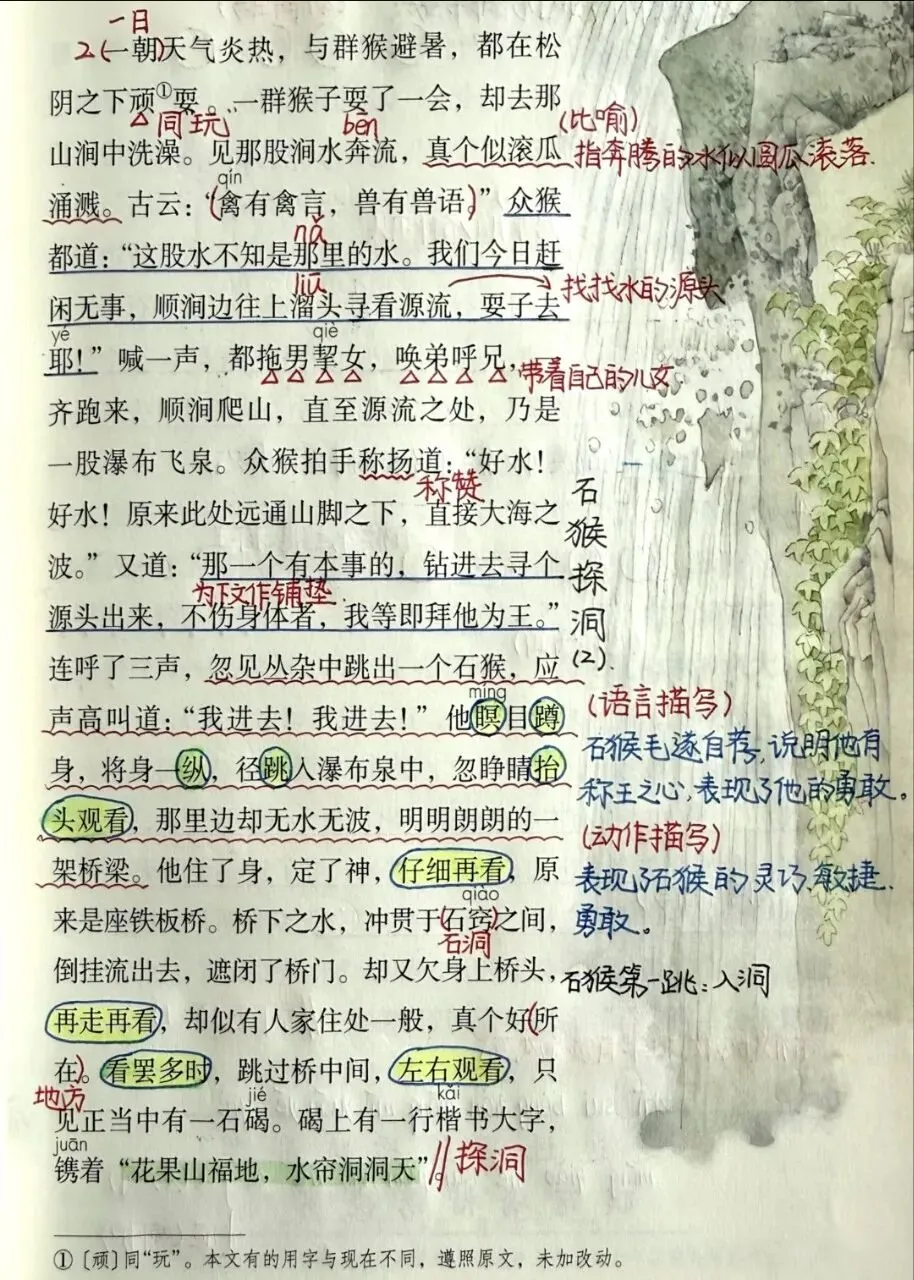 一日
2(一朝)天气炎热，与群猴避暑，都在松
阴之下顽①耍。一群猴子耍了一会，却去那
同“玩”
bēn
(比喻)
山涧中洗澡。见那股涧水奔流，真个似滚瓜
指奔腾的水似圆瓜滚落.
qín
涌溅。古云：“(禽有禽言，兽有兽语)。”众猴
nǎ
都道：“这股水不知是那里的水。我们今日赶
liū
找找水的源头
闲无事，顺涧边往上溜头寻看源流，耍子去
yé
qiè
耶！”喊一声，都拖男挈女，唤弟呼兄，一
带着自己的儿女
齐跑来，顺涧爬山，直至源流之处，乃是
一股瀑布飞泉。众猴拍手称扬道：“好水！
称赞
好水！原来此处远通山脚之下，直接大海之
波。”又道：“那一个有本事的，钻进去寻个
为下文作铺垫.
源头出来，不伤身体者，我等即拜他为王。”
石猴探洞
(2).
连呼了三声，忽见丛杂中跳出一个石猴，应
míng
(语言描写)
声高叫道：“我进去！我进去！”他瞑目蹲
石猴毛遂自荐，说明他有
身，将身一纵，径跳入瀑布泉中，忽睁睛抬
称王之心，表现了他的勇敢。
头观看，那里边却无水无波，明明朗朗的一
(动作描写)
架桥梁。他住了身，定了神，仔细再看，原
表现了石猴的灵巧、敏捷、
qiào
来是座铁板桥。桥下之水，冲贯于(石窍)之间，
勇敢。
石洞
倒挂流出去，遮闭了桥门。却又欠身上桥头，
石猴第一跳：入洞
再走再看，却似有人家住处一般，真个好(所
在)。看罢多时，跳过桥中间，左右观看，只
地方
jié
kǎi
见正当中有一石碣。碣上有一行楷书大字，
juān
镌着“花果山福地，水帘洞洞天”。//
探洞
①〔顽〕同“玩”。本文有的用字与现在不同，遵照原文，未加改动。